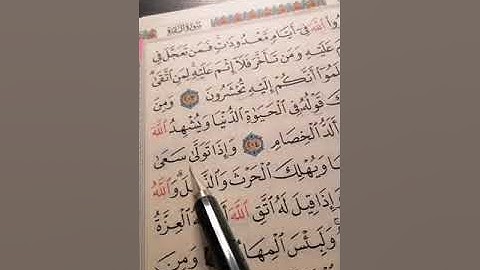 سُورَةُ الْبَقَرَةِ
ٱللَّهَ فِىٓ أَيَّامٍ مَّعْدُودَٰتٍ فَمَن تَعَجَّلَ فِى
عَلَيْهِ وَمَن تَأَخَّرَ فَلَآ إِثْمَ عَلَيْهِ لِمَنِ ٱتَّقَىٰ
أَنَّكُمْ إِلَيْهِ تُحْشَرُونَ ٢٠٣ وَمِنَ
قَوْلُهُۥ فِى ٱلْحَيَوٰةِ ٱلدُّنْيَا وَيُشْهِدُ ٱللَّهَ
أَلَدُّ ٱلْخِصَامِ ٢٠٤ وَإِذَا تَوَلَّىٰ سَعَىٰ
وَيُهْلِكَ ٱلْحَرْثَ وَٱلنَّسْلَ وَٱللَّهُ
وَإِذَا قِيلَ لَهُ ٱتَّقِ ٱللَّهَ ٱلْعِزَّةُ
وَلَبِئْسَ وَمِنَ